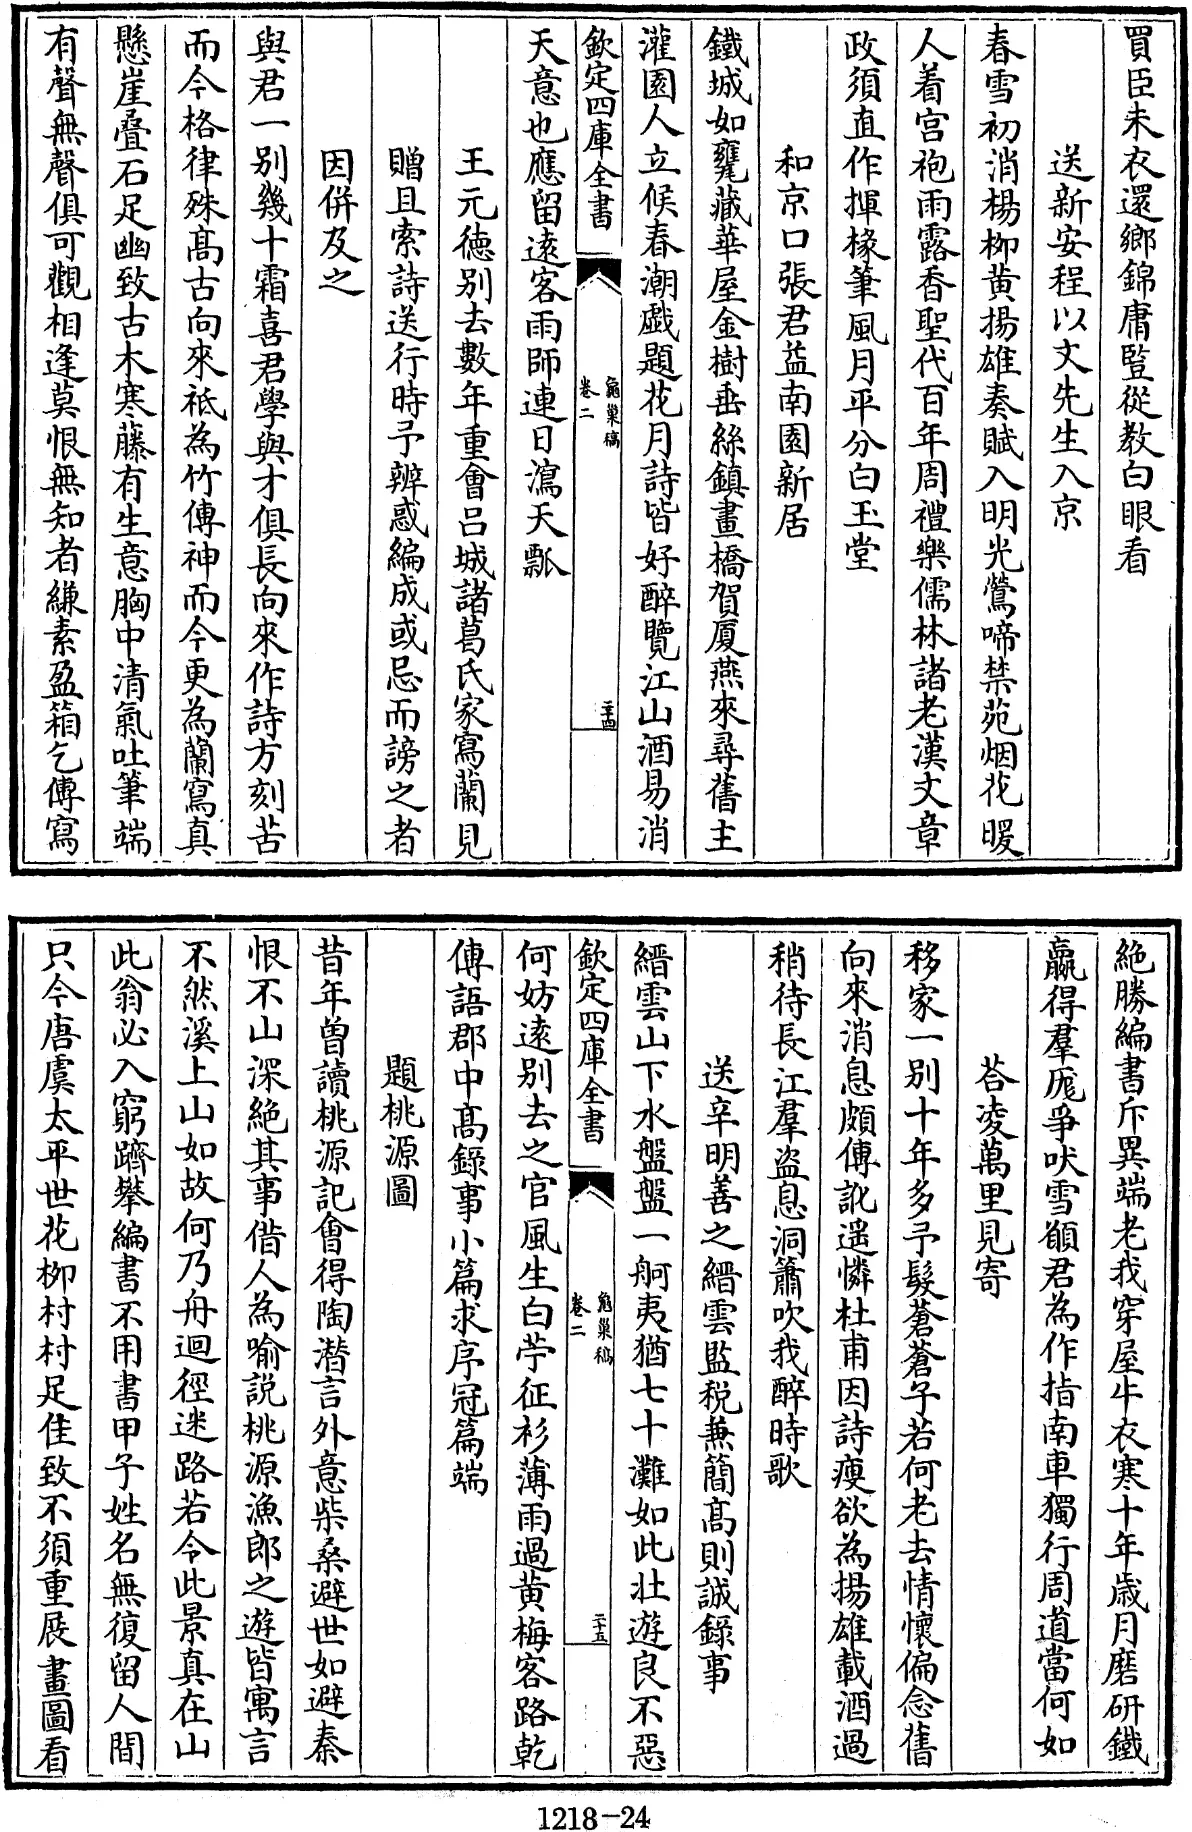 買臣未衣還鄉錦庸豎從教白眼看
送新安程以文先生入京
春雪初消楊柳黄揚雄奏賦入明光鶯啼禁苑烟花暖
人着宫袍雨露香聖代百年周禮樂儒林諸老漢文章
政須直作揮椽筆風月平分白玉堂
和京口張君益南園新居
鐵城如甕藏華屋金樹垂絲鎮畫橋賀厦燕來尋舊主
灌園人立候春潮戯題花月詩皆好醉覽江山酒易消
欽定四庫全書
龜巢稿
卷二
二十四
天意也應留逺客雨師連日瀉天瓢
王元德别去數年重會吕城諸葛氏家寫蘭見
贈且索詩送行時予辨惑編成或忌而謗之者
因併及之
與君一别幾十霜喜君學與才俱長向來作詩方刻苦
而今格律殊髙古向來袛為竹傳神而今更為蘭寫真
懸崖叠石足幽致古木寒藤有生意胸中清氣吐筆端
有聲無聲俱可觀相逢莫恨無知者縑素盈箱乞傳寫
絶勝編書斥異端老我穿屋牛衣寒十年歲月磨研鐵
贏得羣厖爭吠雪願君為作指南車獨行周道當何如
荅凌萬里見寄
移家一别十年多予髮蒼蒼子若何老去情懷偏念舊
向來消息頗傳訛遥憐杜甫因詩瘦欲為揚雄載酒過
稍待長江羣盗息洞簫吹我醉時歌
送辛明善之縉雲監税兼簡髙則誠錄事
縉雲山下水盤盤一舸夷猶七十灘如此壮遊良不惡
欽定四庫全書
龜巢稿
卷二
二十五
何妨逺别去之官風生白苧征衫薄雨過黄梅客路乾
傳語郡中髙錄事小篇求序冠篇端
題桃源圖
昔年曽讀桃源記會得陶潜言外意柴桑避世如避秦
恨不山深絶其事借人為喻説桃源漁郎之遊皆寓言
不然溪上山如故何乃舟迴徑迷路若令此景真在山
此翁必入窮躋攀編書不用書甲子姓名無復留人間
只今唐虞太平世花柳村村足佳致不須重展畫圖看
1218-24